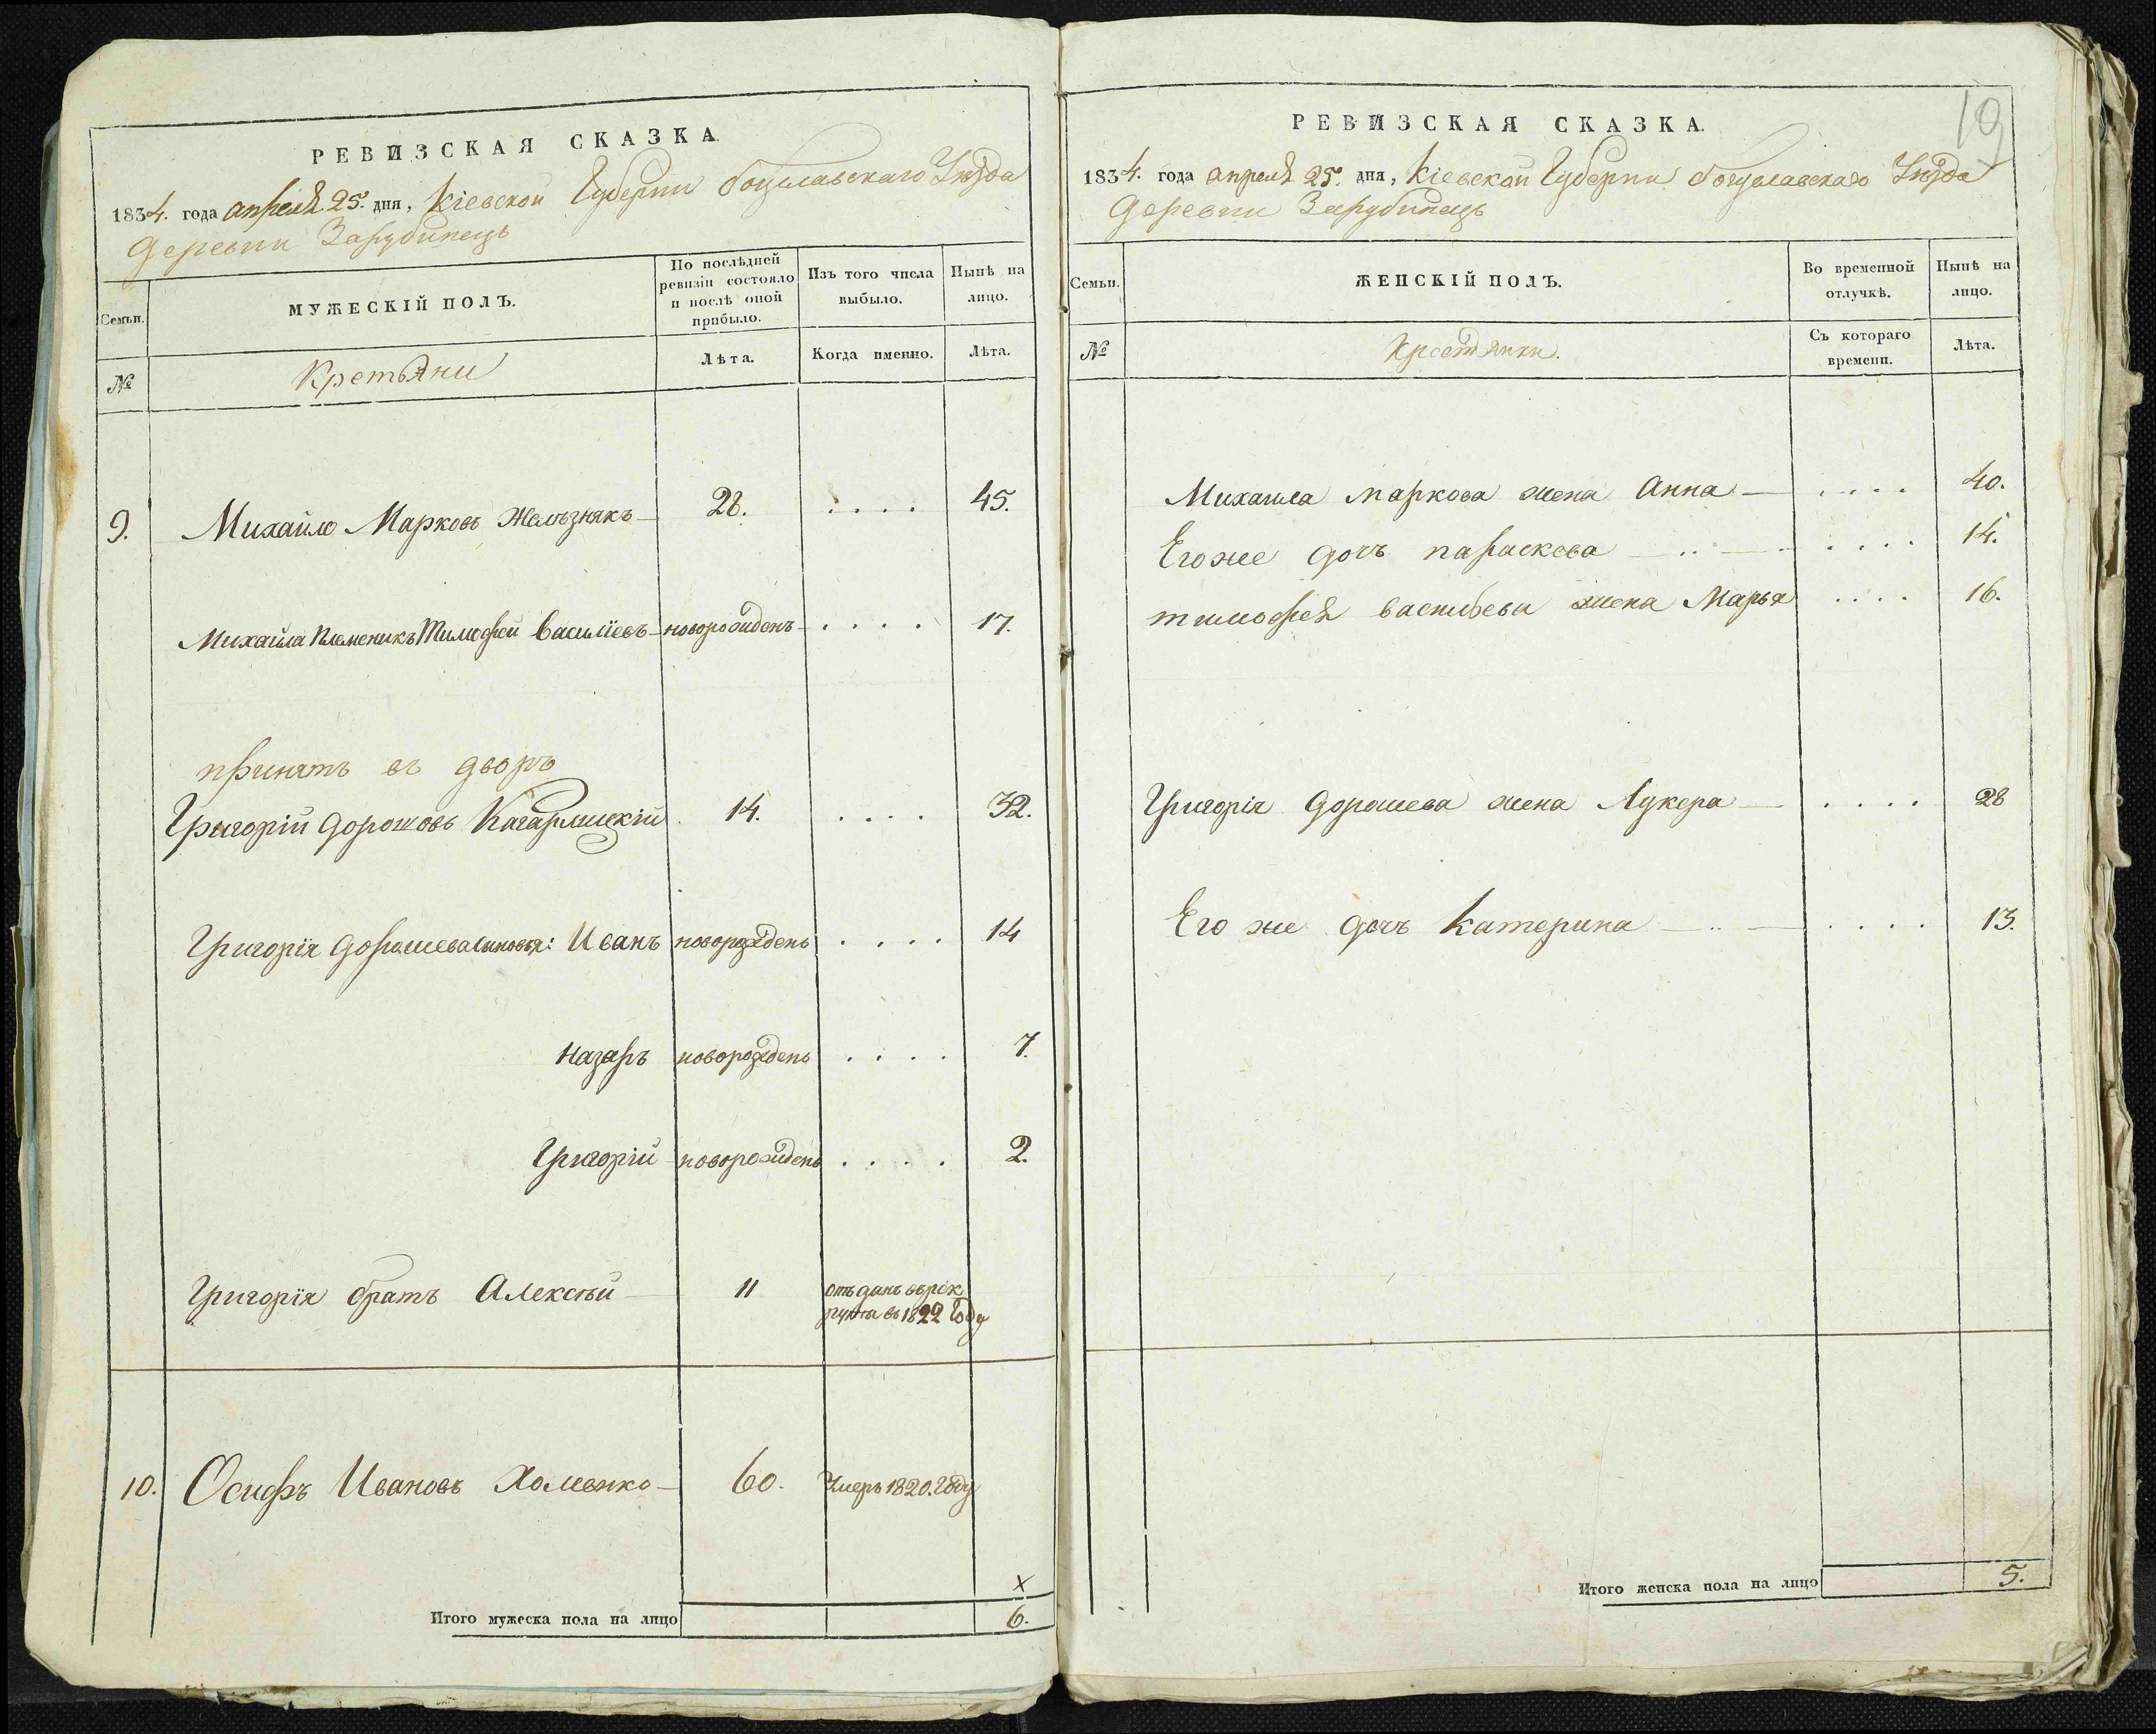 РЕВИЗСКАЯ СКАЗКА.
1834. года апреля 25. дня, Кіевской Губерни богуславскаго Уезда
деревни Зарубинецъ
Семьи.
МУЖЕСКІЙ ПОЛЪ.
По послѣдней ревизіи состояло и послѣ оной прибыло.
Изъ того числа выбыло.
Нынѣ на лицо.
№
Кретьяни
Лѣта.
Когда именно.
Лѣта.
9. Михайло Марковъ Желѣзнякъ 28. . . . . 45.
Михайла племеникъ Тимофей Василіевъ новорожденъ . . . . 17.
принятъ въ дворъ
Григорій дорошовъ Кагарлицкій 14. . . . . 32.
Григорія дорошева сыновья: Иванъ новорожденъ . . . . 14
назаръ новорожденъ . . . . 7.
Григорій новорожденъ . . . . 2.
Григорія братъ Алексѣй 11 отъданъ въ рек
рута въ 1822 Году
10. Осифъ Ивановъ Хоменко 60. Умеръ 1820. Году
x
Итого мужеска пола на лицо 6.
19
РЕВИЗСКАЯ СКАЗКА.
1834. года апреля 25. дня, Кіевской Губерни богуславскаго Уезда
деревни Зарубинецъ
Семьи.
ЖЕНСКІЙ ПОЛЪ.
Во временной отлучкѣ.
Нынѣ на лицо.
№
Крестьянки.
Съ котораго времени.
Лѣта.
Михайла маркова жена Анна . . . . 40.
Его же дочъ параскева . . . . 14.
тимофея васильева жена Марья . . . . 16.
Григорія дорошева жена Лукера . . . . 28
Его же дочъ Катерина . . . . 13.
Итого женска пола на лицо 5.